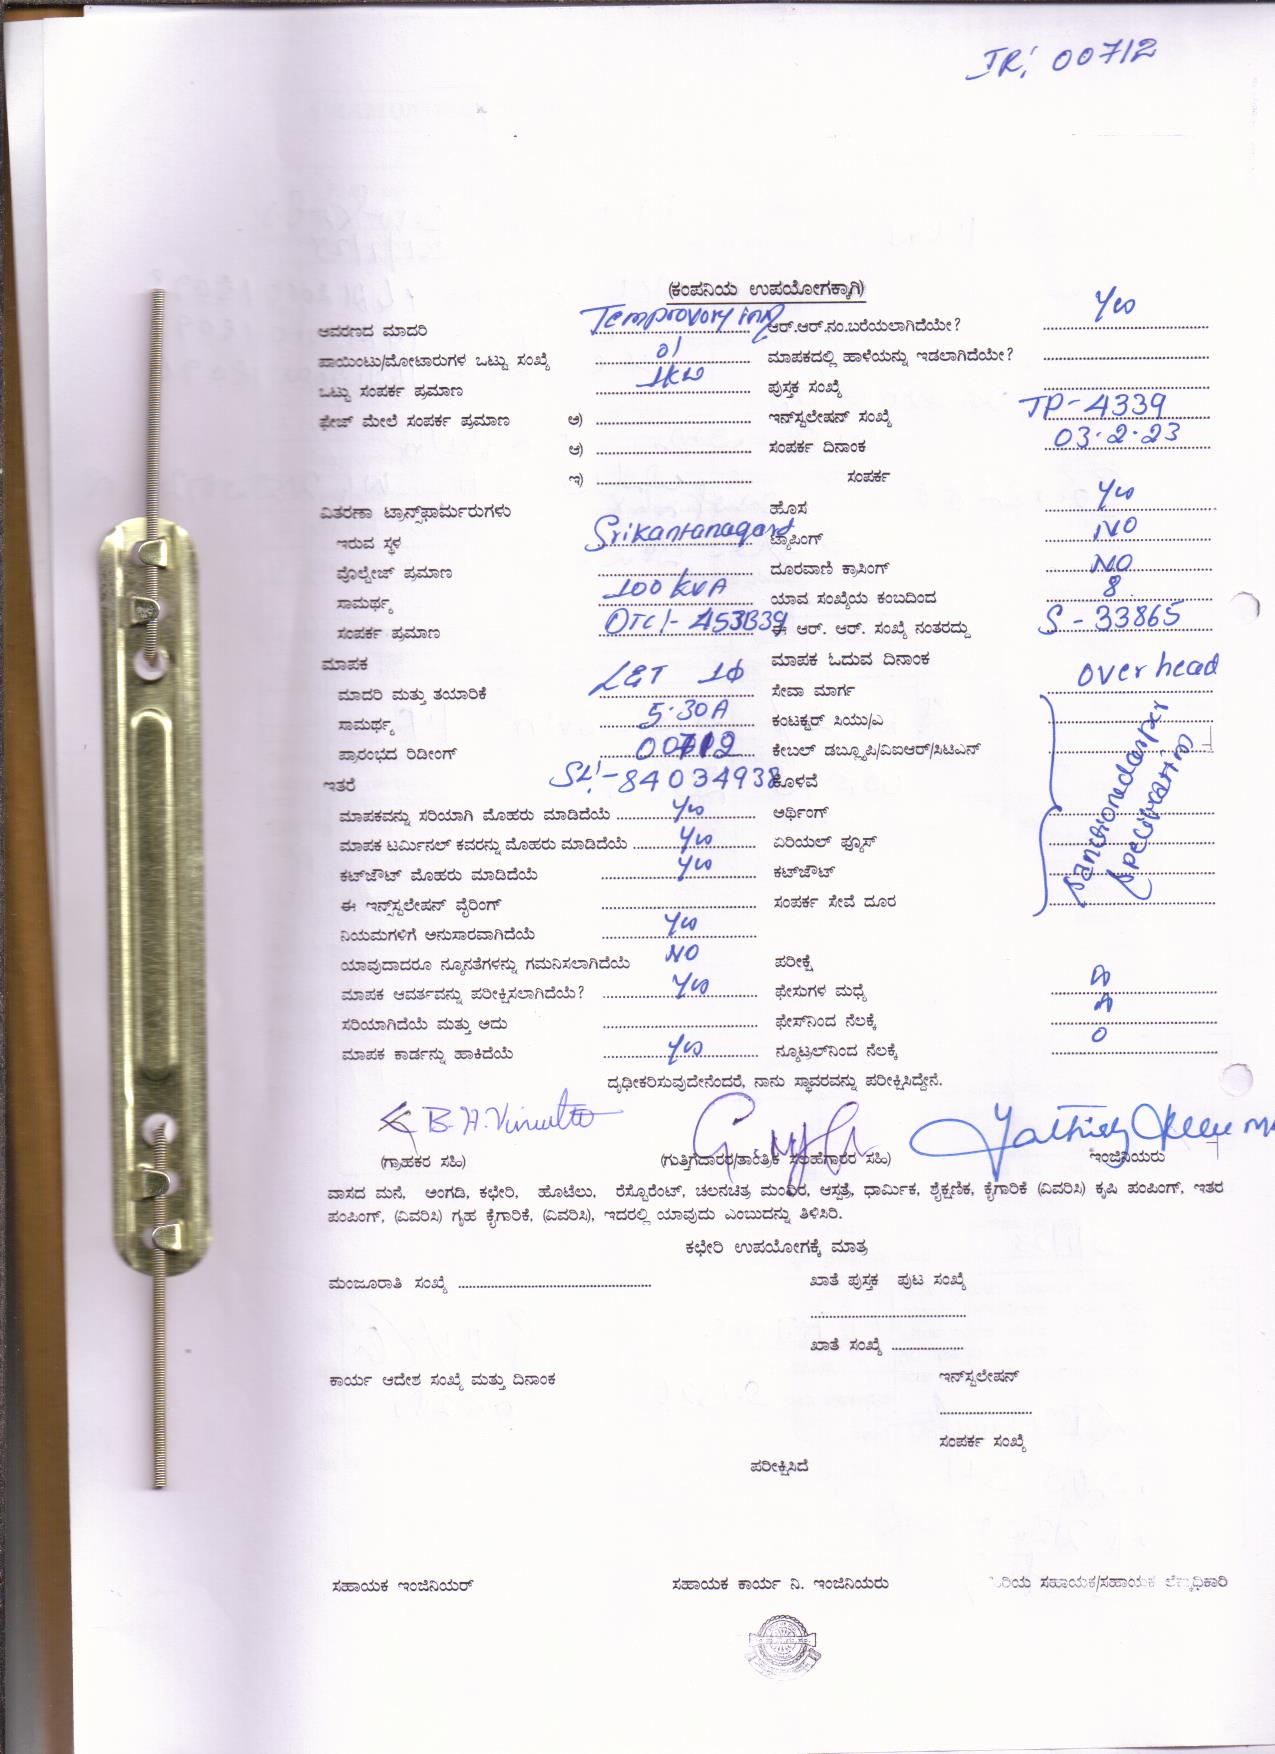 IR: 00712
(ಕಂಪನಿಯ ಉಪಯೋಗಕ್ಕಾಗಿ)
ಆವರಣದ ಮಾದರಿ Temprovory ಆರ್.ಆರ್.ನಂ.ಬರೆಯಲಾಗಿದೆಯೇ? Yes
ಪಾಯಿಂಟು/ಮೋಟಾರುಗಳ ಒಟ್ಟು ಸಂಖ್ಯೆ 01 ಮಾಪಕದಲ್ಲಿ ಹಾಳೆಯನ್ನು ಇಡಲಾಗಿದೆಯೇ?
ಒಟ್ಟು ಸಂಪರ್ಕ ಪ್ರಮಾಣ 1KW ಪುಸ್ತಕ ಸಂಖ್ಯೆ
ಫೇಜ್ ಮೇಲೆ ಸಂಪರ್ಕ ಪ್ರಮಾಣ ಅ) ಇನ್‌ಸ್ಟಲೇಷನ್ ಸಂಖ್ಯೆ TP-4339
ಆ) ಸಂಪರ್ಕ ದಿನಾಂಕ 03.2.23
ಇ) ಸಂಪರ್ಕ
ವಿತರಣಾ ಟ್ರಾನ್ಸ್‌ಫಾರ್ಮರುಗಳು ಹೊಸ Yes
ಇರುವ ಸ್ಥಳ Srikantanagar ಟ್ಯಾಪಿಂಗ್ NO
ವೋಲ್ಟೇಜ್ ಪ್ರಮಾಣ ದೂರವಾಣಿ ಕ್ರಾಸಿಂಗ್ NO
ಸಾಮರ್ಥ್ಯ 100 KVA ಯಾವ ಸಂಖ್ಯೆಯ ಕಂಬದಿಂದ 8
ಸಂಪರ್ಕ ಪ್ರಮಾಣ ಈ ಆರ್. ಆರ್. ಸಂಖ್ಯೆ ನಂತರದ್ದು S-33865
ಮಾಪಕ ಮಾಪಕ ಓದುವ ದಿನಾಂಕ
ಮಾದರಿ ಮತ್ತು ತಯಾರಿಕೆ L&T 1Φ ಸೇವಾ ಮಾರ್ಗ over head
ಸಾಮರ್ಥ್ಯ 5-30A ಕಂಟಕ್ಟರ್ ಸಿಯು/ಎ
ಪ್ರಾರಂಭದ ರಿಡೀಂಗ್ 00712 ಕೇಬಲ್ ಡಬ್ಲ್ಯೂಪಿ/ವಿಐಆರ್/ಸಿಟಿಎನ್
ಇತರೆ SL!-84034938 ಕೊಳವೆ
ಮಾಪಕವನ್ನು ಸರಿಯಾಗಿ ಮೊಹರು ಮಾಡಿದೆಯೆ Yes ಅರ್ಥಿಂಗ್
ಮಾಪಕ ಟರ್ಮಿನಲ್ ಕವರನ್ನು ಮೊಹರು ಮಾಡಿದೆಯೆ Yes ಏರಿಯಲ್ ಫ್ಯೂಸ್
ಕಟ್‌ಔಟ್ ಮೊಹರು ಮಾಡಿದೆಯೆ Yes ಕಟ್‌ಔಟ್
ಈ ಇನ್ಸ್‌ಸ್ಟಲೇಷನ್ ವೈರಿಂಗ್ ಸಂಪರ್ಕ ಸೇವೆ ದೂರ
sanctioned as per
specification
ನಿಯಮಗಳಿಗೆ ಅನುಸಾರವಾಗಿದೆಯೆ Yes
ಯಾವುದಾದರೂ ನ್ಯೂನತೆಗಳನ್ನು ಗಮನಿಸಲಾಗಿದೆಯೆ NO ಪರೀಕ್ಷೆ
ಮಾಪಕ ಆವರ್ತವನ್ನು ಪರೀಕ್ಷಿಸಲಾಗಿದೆಯೆ? Yes ಫೇಸುಗಳ ಮಧ್ಯೆ
ಸರಿಯಾಗಿದೆಯೆ ಮತ್ತು ಅದು ಫೇಸ್‌ನಿಂದ ನೆಲಕ್ಕೆ
ಮಾಪಕ ಕಾರ್ಡನ್ನು ಹಾಕಿದೆಯೆ Yes ನ್ಯೂಟ್ರಲ್‌ನಿಂದ ನೆಲಕ್ಕೆ 0
ದೃಢೀಕರಿಸುವುದೇನೆಂದರೆ, ನಾನು ಸ್ಥಾವರವನ್ನು ಪರೀಕ್ಷಿಸಿದ್ದೇನೆ.
(ಗ್ರಾಹಕರ ಸಹಿ) (ಗುತ್ತಿಗೆದಾರರ/ತಾಂತ್ರಿಕ ಸಲಹೆಗಾರರ ಸಹಿ) ಇಂಜಿನಿಯರು
ವಾಸದ ಮನೆ, ಅಂಗಡಿ, ಕಛೇರಿ, ಹೊಟೆಲು, ರೆಸ್ಟೊರೆಂಟ್, ಚಲನಚಿತ್ರ ಮಂದಿರ, ಆಸ್ಪತ್ರೆ, ಧಾರ್ಮಿಕ, ಶೈಕ್ಷಣಿಕ, ಕೈಗಾರಿಕೆ (ವಿವರಿಸಿ) ಕೃಷಿ ಪಂಪಿಂಗ್, ಇತರ
ಪಂಪಿಂಗ್, (ವಿವರಿಸಿ) ಗೃಹ ಕೈಗಾರಿಕೆ, (ವಿವರಿಸಿ), ಇದರಲ್ಲಿ ಯಾವುದು ಎಂಬುದನ್ನು ತಿಳಿಸಿರಿ.
ಕಛೇರಿ ಉಪಯೋಗಕ್ಕೆ ಮಾತ್ರ
ಮಂಜೂರಾತಿ ಸಂಖ್ಯೆ ಖಾತೆ ಪುಸ್ತಕ ಪುಟ ಸಂಖ್ಯೆ
ಖಾತೆ ಸಂಖ್ಯೆ
ಕಾರ್ಯ ಆದೇಶ ಸಂಖ್ಯೆ ಮತ್ತು ದಿನಾಂಕ ಇನ್‌ಸ್ಟಲೇಷನ್
ಸಂಪರ್ಕ ಸಂಖ್ಯೆ
ಪರೀಕ್ಷಿಸಿದೆ
ಸಹಾಯಕ ಇಂಜಿನಿಯರ್ ಸಹಾಯಕ ಕಾರ್ಯ ನಿ. ಇಂಜಿನಿಯರು ಹಿರಿಯ ಸಹಾಯಕ/ಸಹಾಯಕ ಲೆಕ್ಕಾಧಿಕಾರಿ